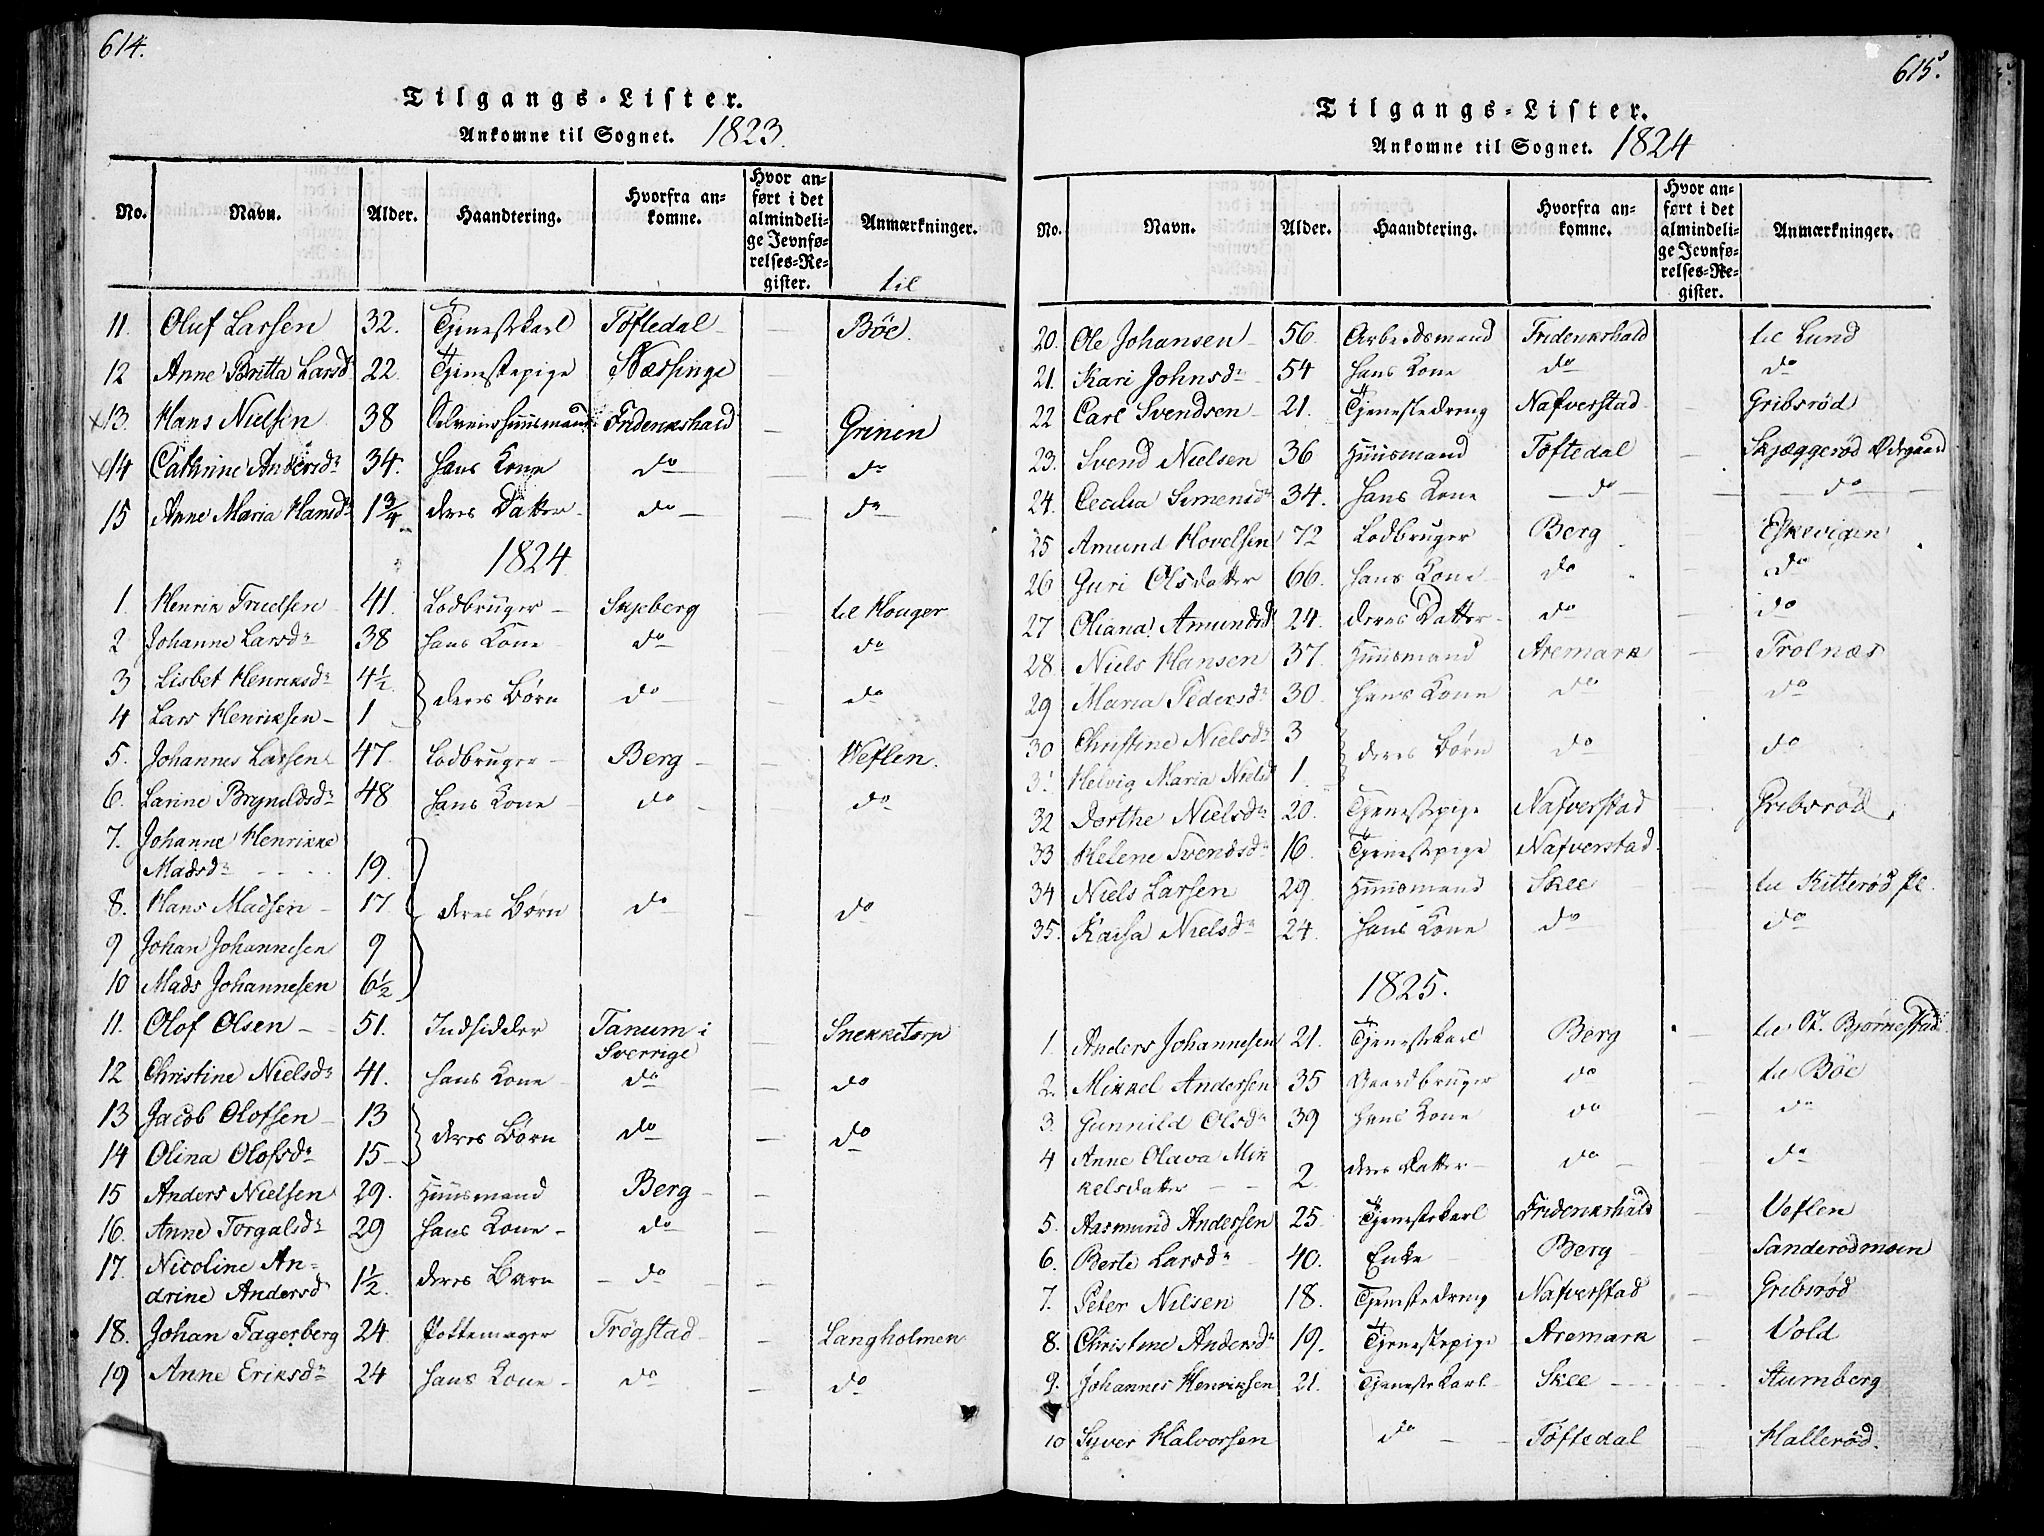 614.
Tilgangs-Lister.
Ankomne til Sognet. 1823.
No. Navn. Alder. Haandtering. Hvorfra ankomne. Hvor anført i det almindelige Jevnførelses-Register. Anmærkninger.
til
11. Oluf Larsen 32. Tjenestekarl Töftedal — Böe.
12 Anne Britta Larsdr 22. Tjenestepige Næssinge —
×13. Hans Nielsen 38 Huusmand Fridenkshald — Grenen
×14 Cathrine Andersdr 34. hans Kone do — do
15 Anne Maria Hansdr 1 3/4 deres Datter do — do
1824
1. Henrik Truelsen 41. Lodbruger — Skjeberg — til Houger
2 Johanne Larsdr 38 hans Kone do — do
3 Lisbet Henriksdr 4 1/2 } deres Börn do — do
4 Lars Henriksen — 1
5. Johannes Larsen 47 Lodbruger — Berg — Weflen.
6. Larine Bryndldsdr 48 hans Kone do — do
7. Johanne Henrikke
Madsdr 19.
8. Hans Madsen 17 } deres Börn do — do
9 Johan Johannesen 9
10 Mads Johannesen 6 1/2
11. Olof Olsen — 51. Indsidder Tanum i — Snekketorp
Sverrige
12 Christine Nielsdr 41. hans Kone do — do
13 Jacob Olofsen — 13 } deres Börn do — do
14 Olina Olofsdr 15 —
15 Anders Nielsen 29. Huusmand Berg —
16. Anne Torgalsdr 29 hans Kone — do
17. Nicoline An-
drine Andersd 1 1/2. deres Barn — do —
18. Johan Fagerberg 24 Pottemager Trögstad — Langholmen
19 Anne Eriksdr 24 hans Kone — do — do
615.
Tilgangs-Lister.
Ankomne til Sognet. 1824
No. Navn. Alder. Haandtering. Hvorfra ankomne. Hvor anført i det almindelige Jevnførelses-Register. Anmærkninger.
20. Ole Johansen 56. Arbeidsmand Fridenkshald til Lund
21. Kari Johnsdr 54 hans Kone do do
22 Carl Svendsen 21. Tjenestedreng Nafverstad — Gribsröd
23. Svend Nielsen 36 Huusmand Töftedal — Skjæggeröd Ödegaard
24. Cecilia Simensdr 34. hans Kone — do — — do —
25 Amund Hovelsen 72 Lodbruger Berg Eskevigen
26 Guri Olsdatter 66. hans Kone do — do
27 Oliana Amundsd 24. deres Datter do — do
28. Niels Hansen 37. Huusmand Aremark — Trolnæs
29 Maria Pedersdr 30. hans Kone do — do
30 Christine Nielsdr 3 } deres Börn do — do
31 Helvig Maria Nielsd 1.
32 Dorthe Nielsdr 20. Tjenestepige Nafverstad — Gribsröd
33 Helene Svendsdr 16. Tjenestepige Nafverstad.
34 Niels Larsen 29. Huusmand Skee — til Kitteröd pl.
35. Kaisa Nielsdr 24. hans Kone do — do
1825.
1. Anders Johannesen 21. Tjenestekarl Berg — til St. Björnestad
2. Mikkel Andersen 35 Gaardbruger do — til Böe
3. Gunnild Olsdr 39 hans Kone do — do
4 Anne Olava Mik
kelsdatter — 2. deres Datter — do — do
5. Aasmund Andersen 25. Tjenestekarl Fridenkshald — Veflen
6. Berte Larsdr 40. Enke Berg Sanderödmoen
7. Peter Nilsen 18. Tjenestedreng Nafverstad — Gribsröd
8. Christine Andersdr 19. Tjenestepige Aremark — Vold
9. Johannes Henriksen 21. Tjenestekarl Skee — Stumberg
10 Syver Halvorsen do — Töftedal — Halleröd.